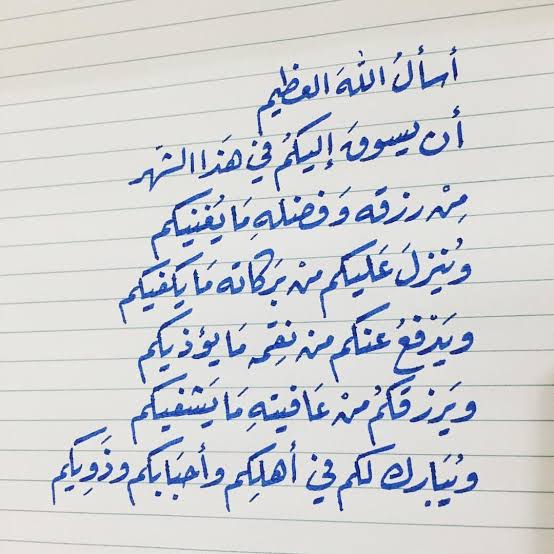 أسألُ اللهَ العظيم
أن يسوقَ إليكمُ في هَذا الشهر
مِنْ رزقه وَفضلهِ مَا يُغنيكم
وَيُنزلَ عَليكم منْ بَركاته مَا يكفيكم
ويَدفعُ عنكم منْ نِقمه مَا يؤذيكم
ويَرزقكمُ منْ عَافيتهِ مَا يَشفيكم
ويُبَارك لكم في أهلِكم وأحبَابكم وذَوِيكم